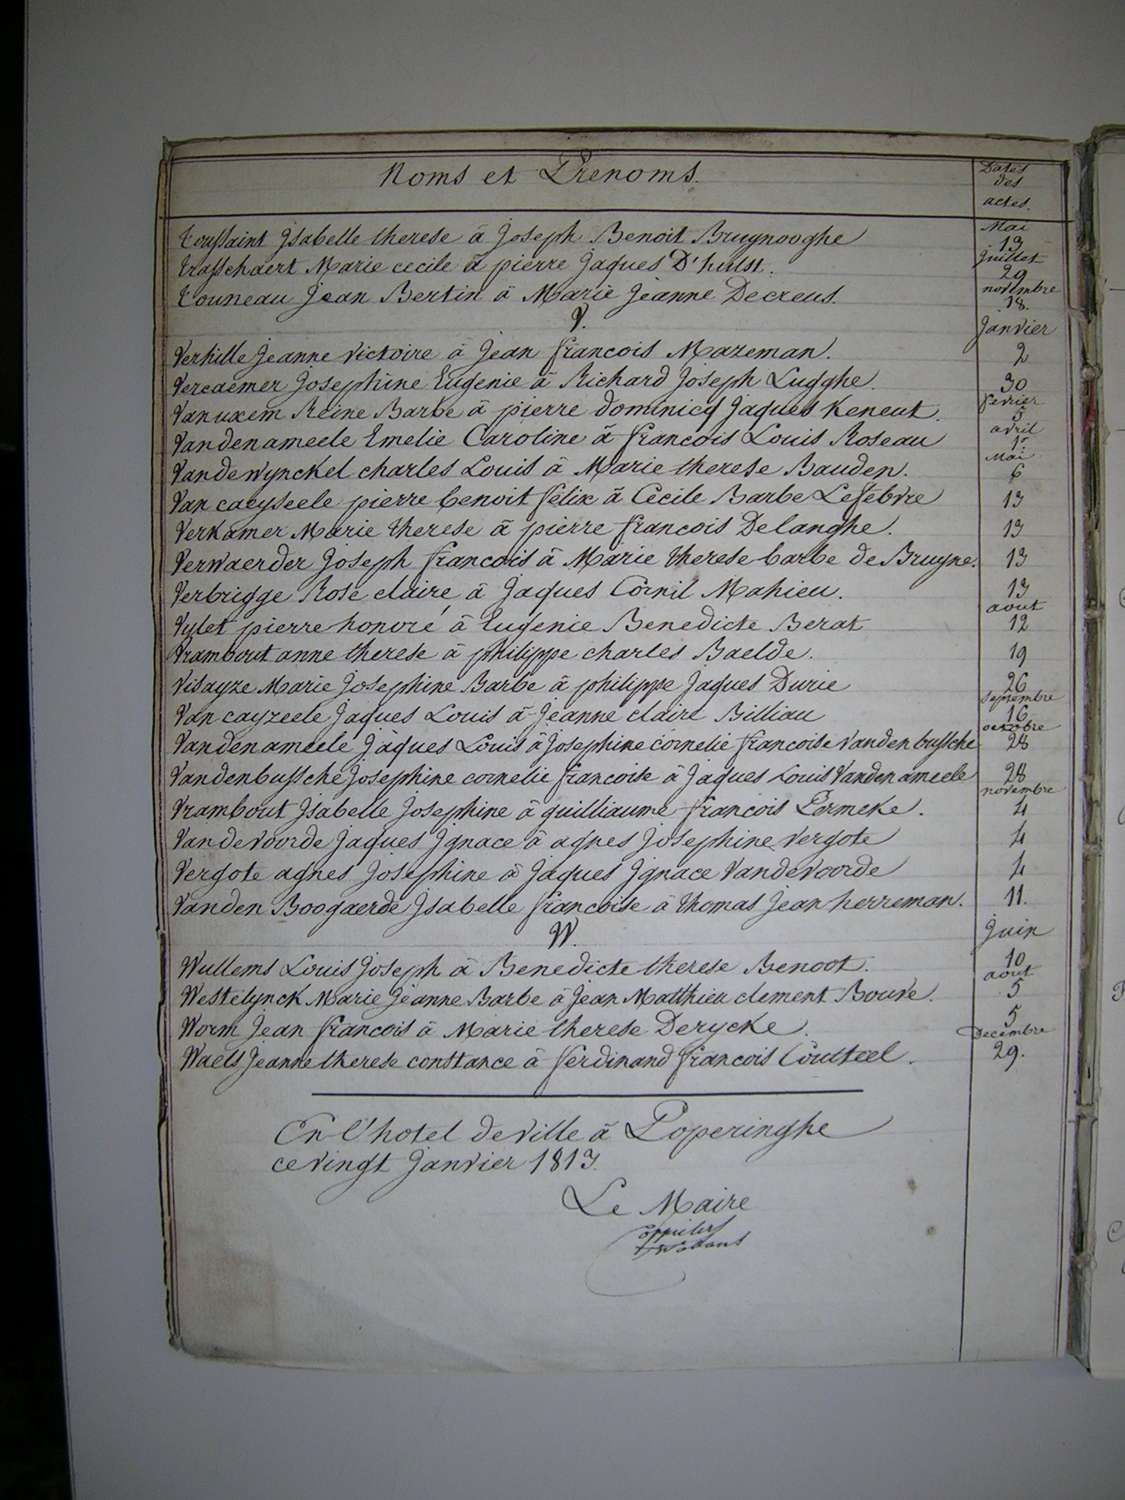 Noms et Prenoms.
Dates
des
actes.
Mai
Toussaint Isabelle therese à Joseph Benoit Bruynooghe 13
Juillet
Trasschaert Marie cecile à pierre Jaques D'hulst. 29
novembre
Touneau Jean Bertin à Marie Jeanne Decreus. 18.
V.
Janvier
Verhille Jeanne victoire à Jean francois Mazeman. 2
Vercaemer Josephine Eugenie à Richard Joseph Lugghe. 30
fevrier
Vanuxem Reine Barbe à pierre dominicq Jaques Keneut. 5
avril
Vandenameele Emelie Caroline à francois Louis Roseau 1r
Mai
Vandewynckel charles Louis à Marie therese Bauden. 6
Van caeyseele pierre benoit félix à Cécile Barbe Lefebvre 13
Verkamer Marie therese à pierre francois Delanghe. 13
Verwaerder Joseph francois à Marie therese barbe de Bruyne. 13
Verbrigge Rose claire à Jaques Cornil Mahieu. 13
aout
Vylet pierre honoré à Eugenie Benedicte Berat 12
Vrambout anne therese à philippe charles Baelde. 19
Visayze Marie Josephine Barbe à philippe Jaques Durie 26
Septembre
Van cayzeele Jaques Louis à Jeanne claire Billiau 16
octobre
Vandenameele Jaques Louis à Josephine cornelie francoise Vandenbussche 28
Vandenbussche Josephine cornelie francoise à Jaques Louis Vandenameele 28
novembre
Vrambout Isabelle Josephine à guilliaume francois Permeke. 4
Vandevoorde Jaques Ignace à agnes Josephine vergote 4
Vergote agnes Josephine à Jaques Ignace Vandevoorde 4
Vanden Boogaerde Isabelle francoise à thomas Jean herreman. 11.
W.
Juin
Wullems Louis Joseph à Benedicte therese Benoot. 10
aout
Westelynck Marie Jeanne Barbe à Jean Matthieu clement Bouve. 5
Worm Jean francois à Marie therese Derycke. 5
Decembre
Waels Jeanne therese constance à ferdinand francois Coulteel. 29.
En l'hotel de ville à Poperinghe
ce vingt Janvier 1813.
Le Maire